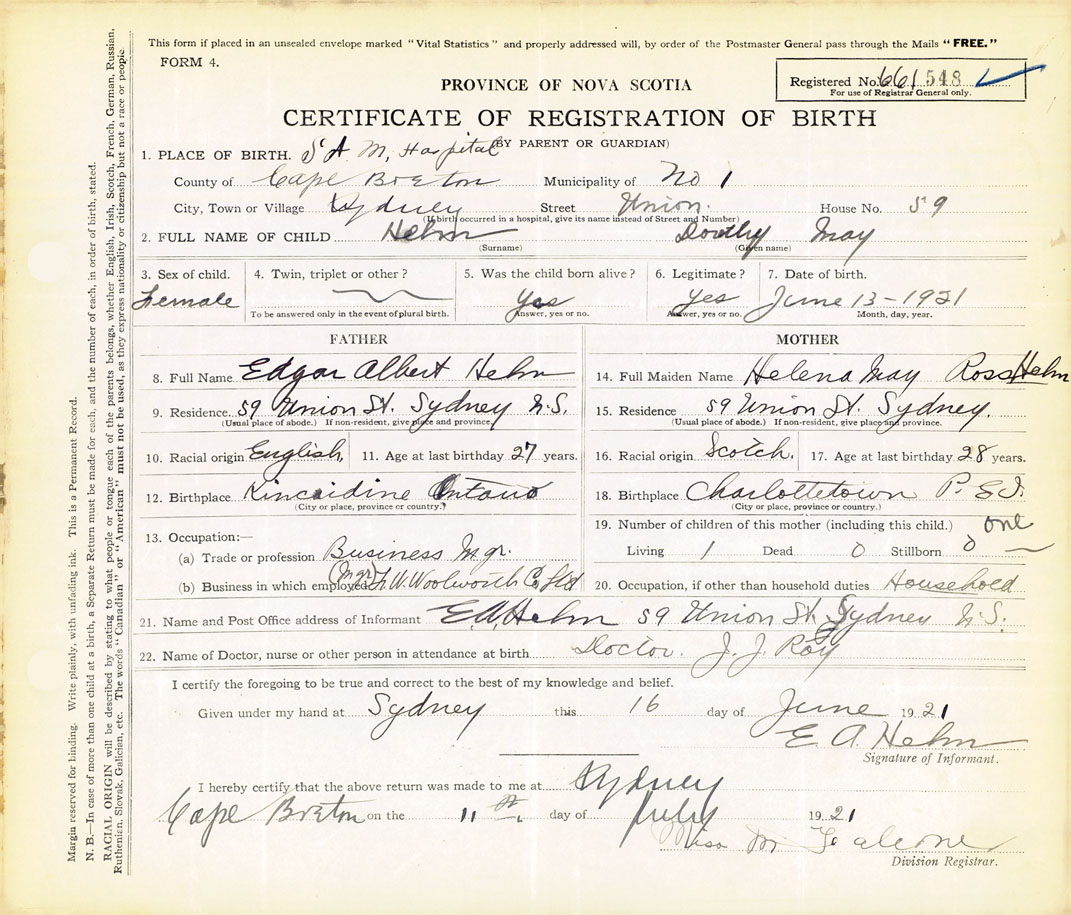 This form if placed in an unsealed envelope marked "Vital Statistics" and properly addressed will, by order of the Postmaster General pass through the Mails "FREE."
FORM 4.
Registered No. 661548
For use of Registrar General only.
PROVINCE OF NOVA SCOTIA
CERTIFICATE OF REGISTRATION OF BIRTH
(BY PARENT OR GUARDIAN)
1. PLACE OF BIRTH. S A M, Hospital
County of Cape Breton Municipality of No 1
City, Town or Village Sydney Street Union. House No. 59
(If birth occurred in a hospital, give its name instead of Street and Number)
2. FULL NAME OF CHILD Helm Dorothy May
(Surname) (Given name)
3. Sex of child. 4. Twin, triplet or other? 5. Was the child born alive? 6. Legitimate? 7. Date of birth.
Female Yes Yes June 13-1921
To be answered only in the event of plural birth. Answer, yes or no. Answer, yes or no. Month, day, year.
FATHER MOTHER
8. Full Name Edgar Albert Helm 14. Full Maiden Name Helena May Ross Helm
9. Residence 59 Union St. Sydney N.S. 15. Residence 59 Union St. Sydney
(Usual place of abode.) If non-resident, give place and province. (Usual place of abode.) If non-resident, give place and province.
10. Racial origin English, 11. Age at last birthday 27 years. 16. Racial origin Scotch. 17. Age at last birthday 28 years.
12. Birthplace Kincaidine Ontario 18. Birthplace Charlottetown P.E.I.
(City or place, province or country.) (City or place, province or country.)
19. Number of children of this mother (including this child.) one
13. Occupation:—
(a) Trade or profession Business Mgr. Living 1 Dead 0 Stillborn 0
(b) Business in which employed (Mgr) F.W. Woolworth Co. Ltd 20. Occupation, if other than household duties Household
21. Name and Post Office address of Informant E.A. Helm 59 Union St. Sydney N.S.
22. Name of Doctor, nurse or other person in attendance at birth Doctor. J. J. Roy
I certify the foregoing to be true and correct to the best of my knowledge and belief.
Given under my hand at Sydney this 16 day of June 1921
E. A. Helm
Signature of Informant.
I hereby certify that the above return was made to me at Sydney
Cape Breton on the 11th. day of July 1921
Miss M
Division Registrar.
Margin reserved for binding. Write plainly, with unfading ink. This is a Permanent Record.
N. B.—In case of more than one child at a birth, a Separate Return must be made for each, and the number of each, in order of birth, stated.
RACIAL ORIGIN will be described by stating to what people or tongue each of the parents belongs, whether English, Irish, Scotch, French, German, Russian,
Ruthenian, Slovak, Galician, etc. The words "Canadian" or "American" must not be used, as they express nationality or citizenship but not a race or people.